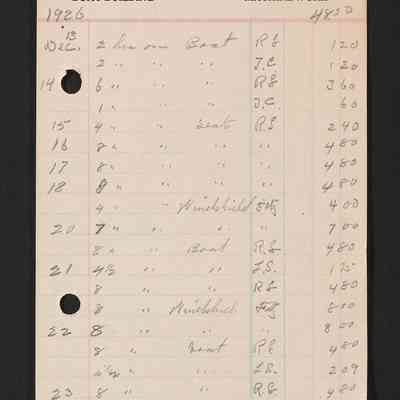 1926 48.00
Dec. 13 2 hrs on Boat R.S. 1 20
2 " " " J.C. 1 20
14 6 " " " R.S. 3 60
1 " " " J.C. 60
15 4 " " Seat R.S. 2 40
16 8 " " " " 4 80
17 8 " " " " 4 80
18 8 " " " " 4 80
4 " " Windshield 4 00
20 7 " " " " 7 00
8 " " Boat R.S. 4 80
21 4½ " " L.S.
8 " " R.S. 4 80
8 " Windshield 8 00
22 8 " " " 8 00
8 " Boat R.S. 4 80
" " L.S. 2 09
23 8 " " R.S. 4 80